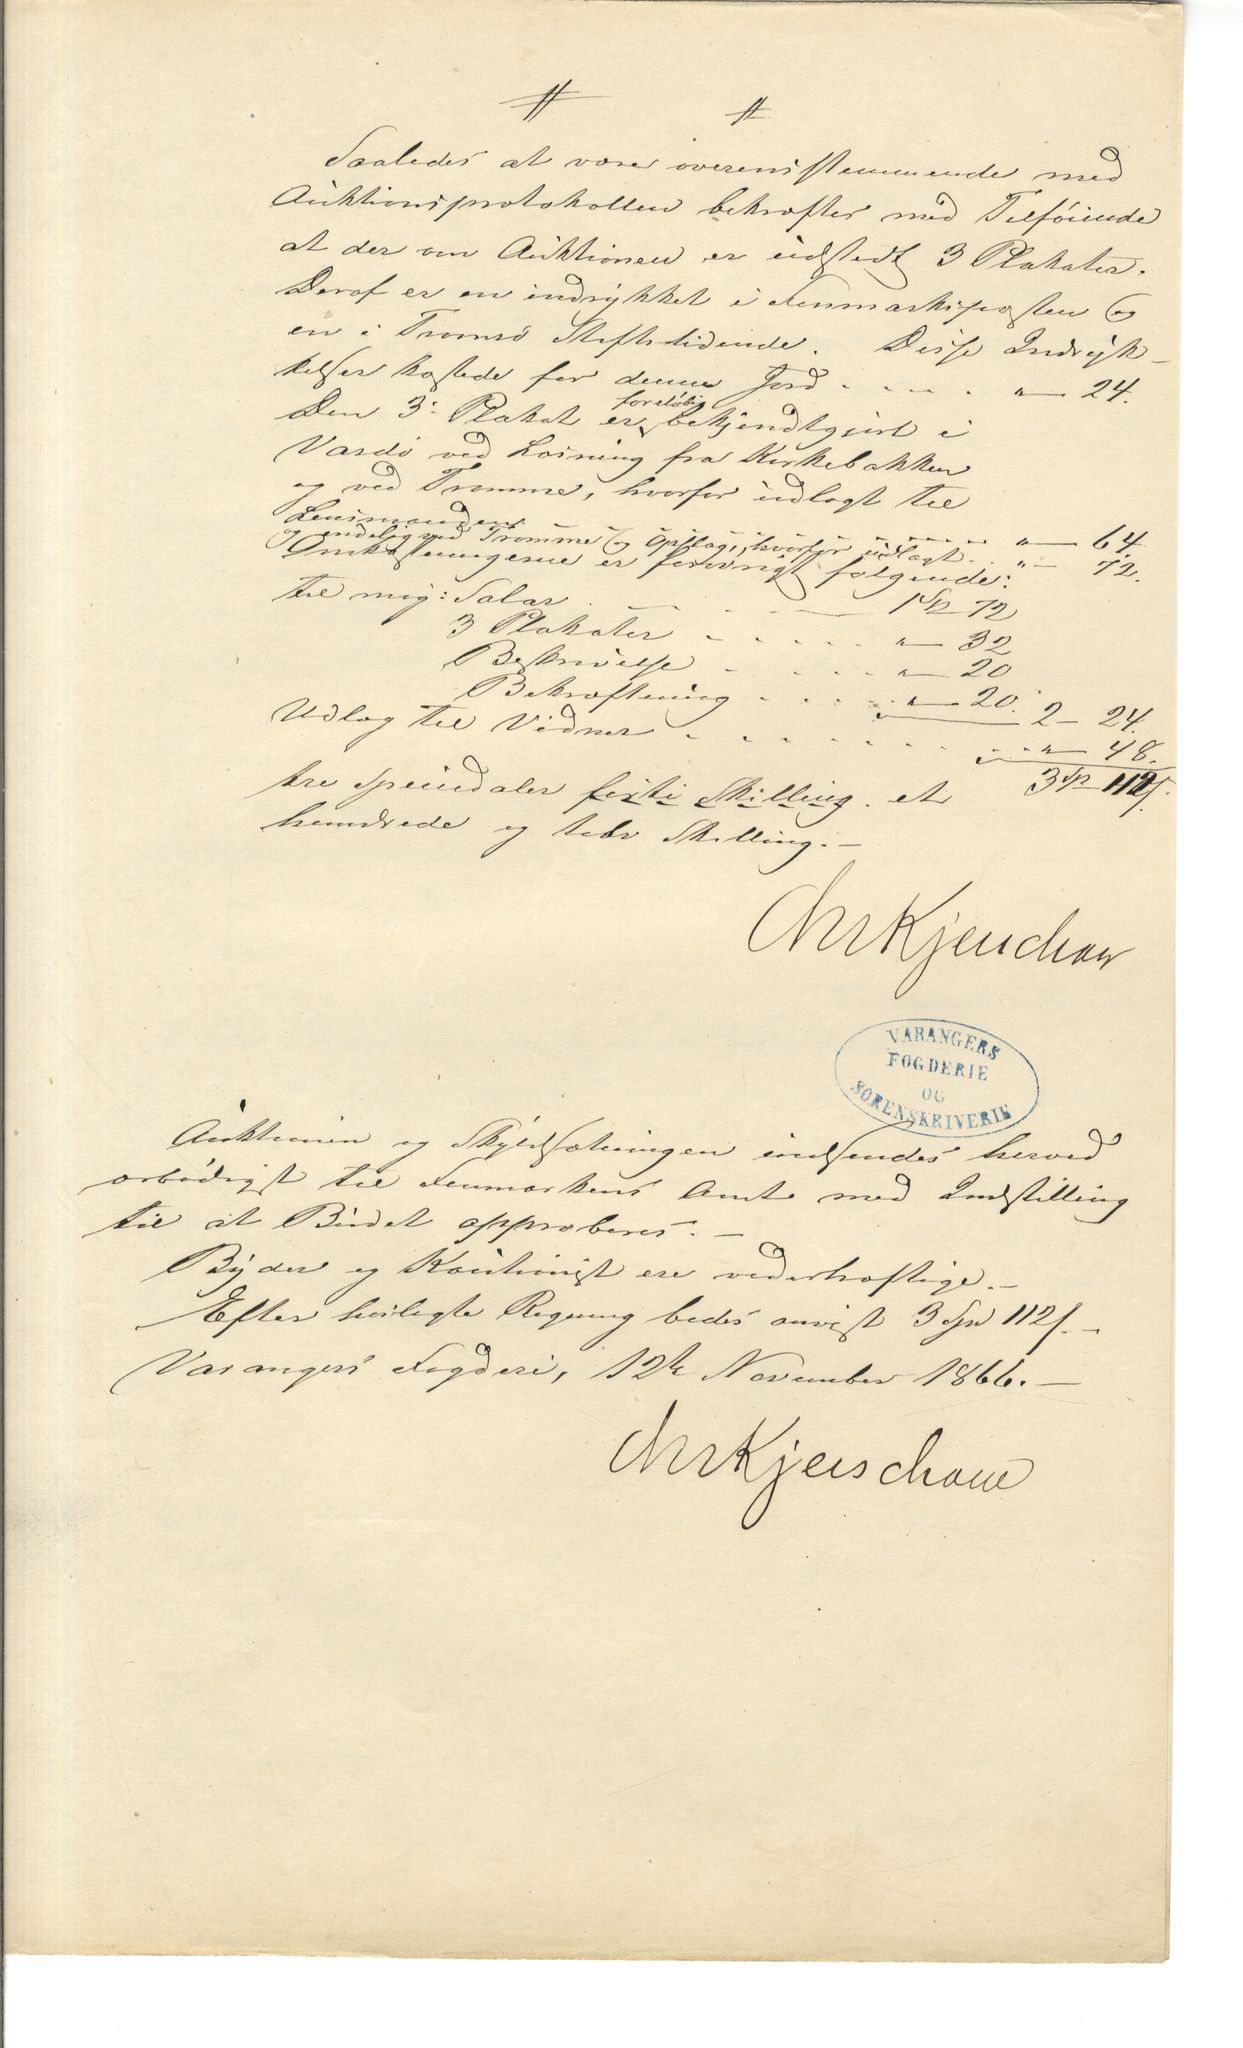 Saaledes at være overensstemmende med
Auktionsprotokollen bekræfter med Tilføiende
at der om Auktionen er udstedt 3 Plakater.
Deraf er en indrykket i Finmarksposten og
en i Tromsø Stiftstidende. Disse Indryk-
kelser kostede for denne Jord . . . . " — 24.
Den 3: Plakat er foreløbig bekjendtgjort i
Vardø ved Læsning fra Kirkebakken
og ved Tromme, hvorfor udlagt til
Lensmanden . . . . . . " — 64
og endelig ved Tromme og Opslag, hvorfor udlagt . . " — 72.
Omkostningerne er forøvrigt følgende:
til mig: Salær . . . . 1 Sp 72
3 Plakater . . . . . " — 32
Beskrivelse . . . . . " — 20
Bekræftning . . . . . " — 20. 2 — 24.
Udlæg til Vidner . . . . . . . . . " — 48.
3 Sp 112 s.
tre Speciedaler firti Skilling. et
hundrede og tolv Skilling. —
Chr Kjerschow
VARANGERS
FOGDERIE
OG
SORENSKRIVERIE
Auktionen og Skyldsætningen indsendes herved
ærbødigst til Finmarkens Amt med Indstilling
til at Budet approberes. —
Byder og Kautionist ere vederhæftige. —
Efter hoslagte Regning bedes anvist 3 Spd 112 s. —
Varangers Fogderi, 12te November 1866. —
Chr Kjerschow